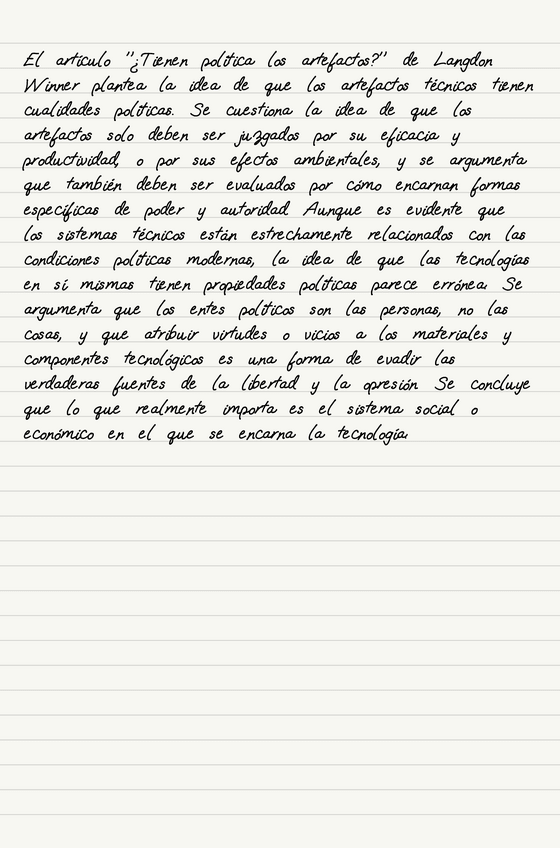 El artículo "¿Tienen política los artefactos?" de Langdon
Winner plantea la idea de que los artefactos técnicos tienen
cualidades políticas. Se cuestiona la idea de que los
artefactos solo deben ser juzgados por su eficacia y
productividad, o por sus efectos ambientales, y se argumenta
que también deben ser evaluados por cómo encarnan formas
específicas de poder y autoridad. Aunque es evidente que
los sistemas técnicos están estrechamente relacionados con las
condiciones políticas modernas, la idea de que las tecnologías
en sí mismas tienen propiedades políticas parece errónea. Se
argumenta que los entes políticos son las personas, no las
cosas, y que atribuir virtudes o vicios a los materiales y
componentes tecnológicos es una forma de evadir las
verdaderas fuentes de la libertad y la opresión. Se concluye
que lo que realmente importa es el sistema social o
económico en el que se encarna la tecnología.